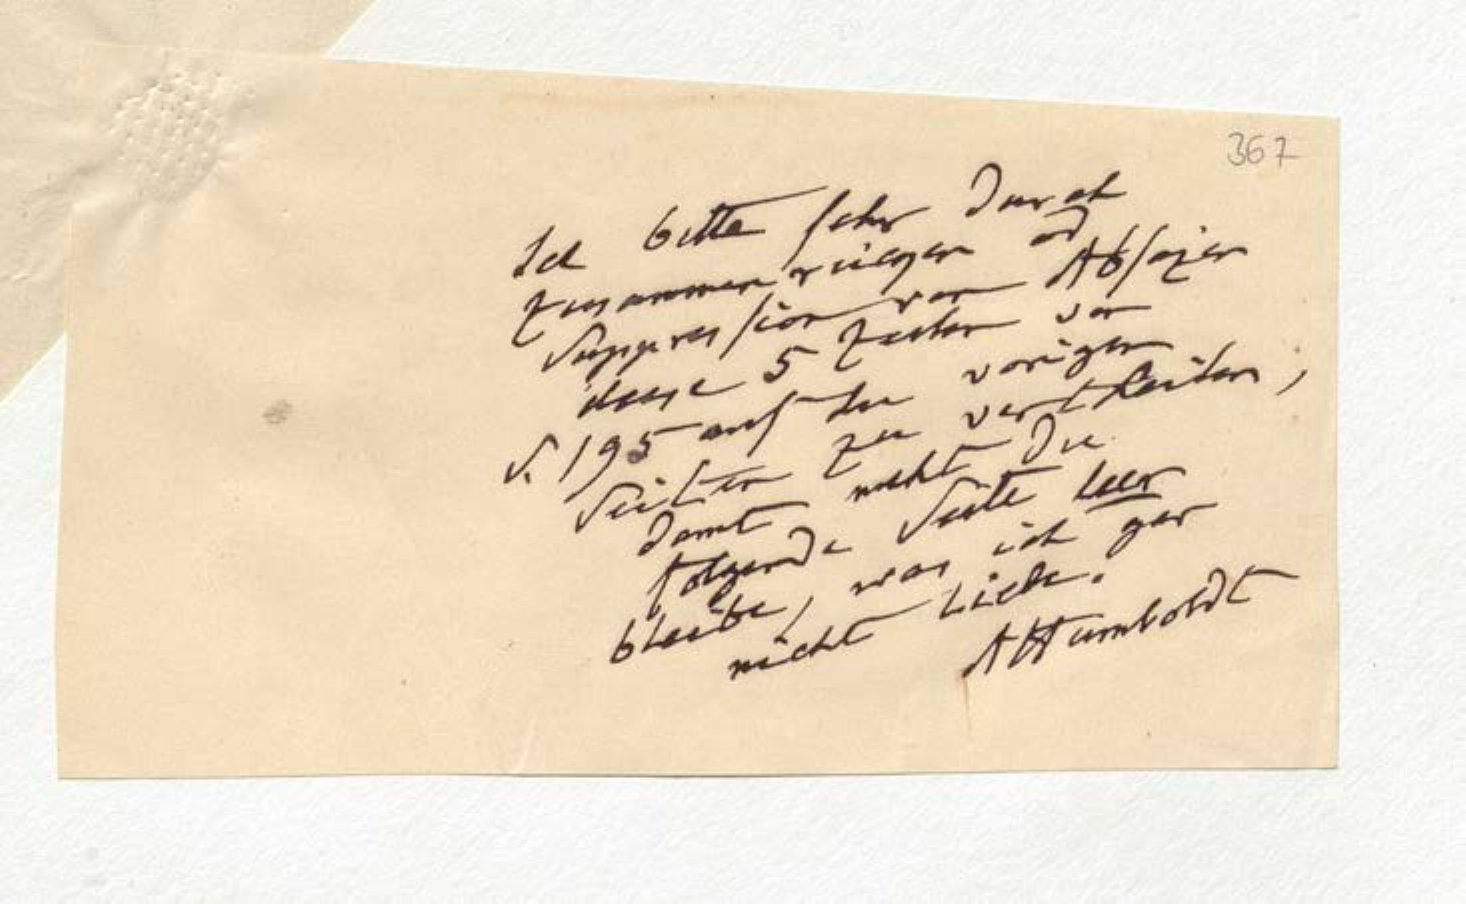 367
Ich bitte sehr durch
zusammenrücken od
Suppression von Absäzen
diese 5 Zeilen von
S. 195 auf die vorigen
Seiten zu vertheilen,
damit nicht die
folgende Seite leer
bleibe, was ich gar
nicht liebe.
AHumboldt